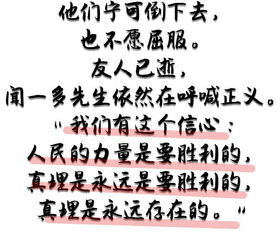 他们宁可倒下去，
也不愿屈服。
友人已逝，
闻一多先生依然在呼喊正义。
“我们有这个信心：
人民的力量是要胜利的，
真理是永远是要胜利的，
真理是永远存在的。”